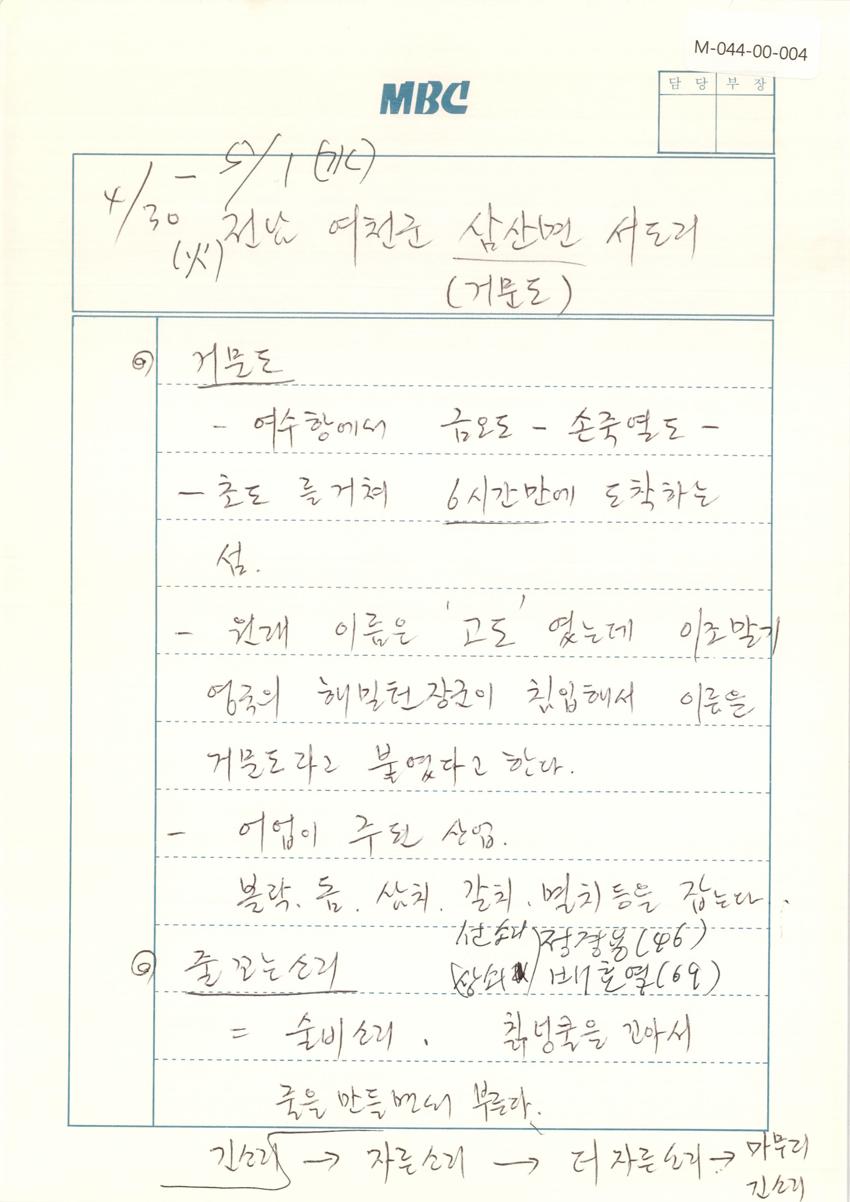 M-044-00-004
담 당 부 장
MBC
4/30 (火) - 5/1 (水)
전남 여천군 삼산면 서도리
(거문도)
거문도
- 여수항에서 금오도 - 손죽열도 -
- 초도 를거쳐 6시간만에 도착하는
섬.
- 원래 이름은 '고도' 였는데 이조말기
영국의 해밀턴장군이 침입해서 이름을
거문도라고 붙였다고 한다.
- 어업이 주된 산업.
볼락. 돔. 삼치. 갈치. 멸치등을 잡는다.
선소리) 정경용(46)
줄꼬는소리
배호열(69)
= 술비소리. 칡넝쿨을 꼬아서
줄을 만들면서 부른다.
긴소리 → 자른소리 → 더 자른소리 → 마무리
긴소리